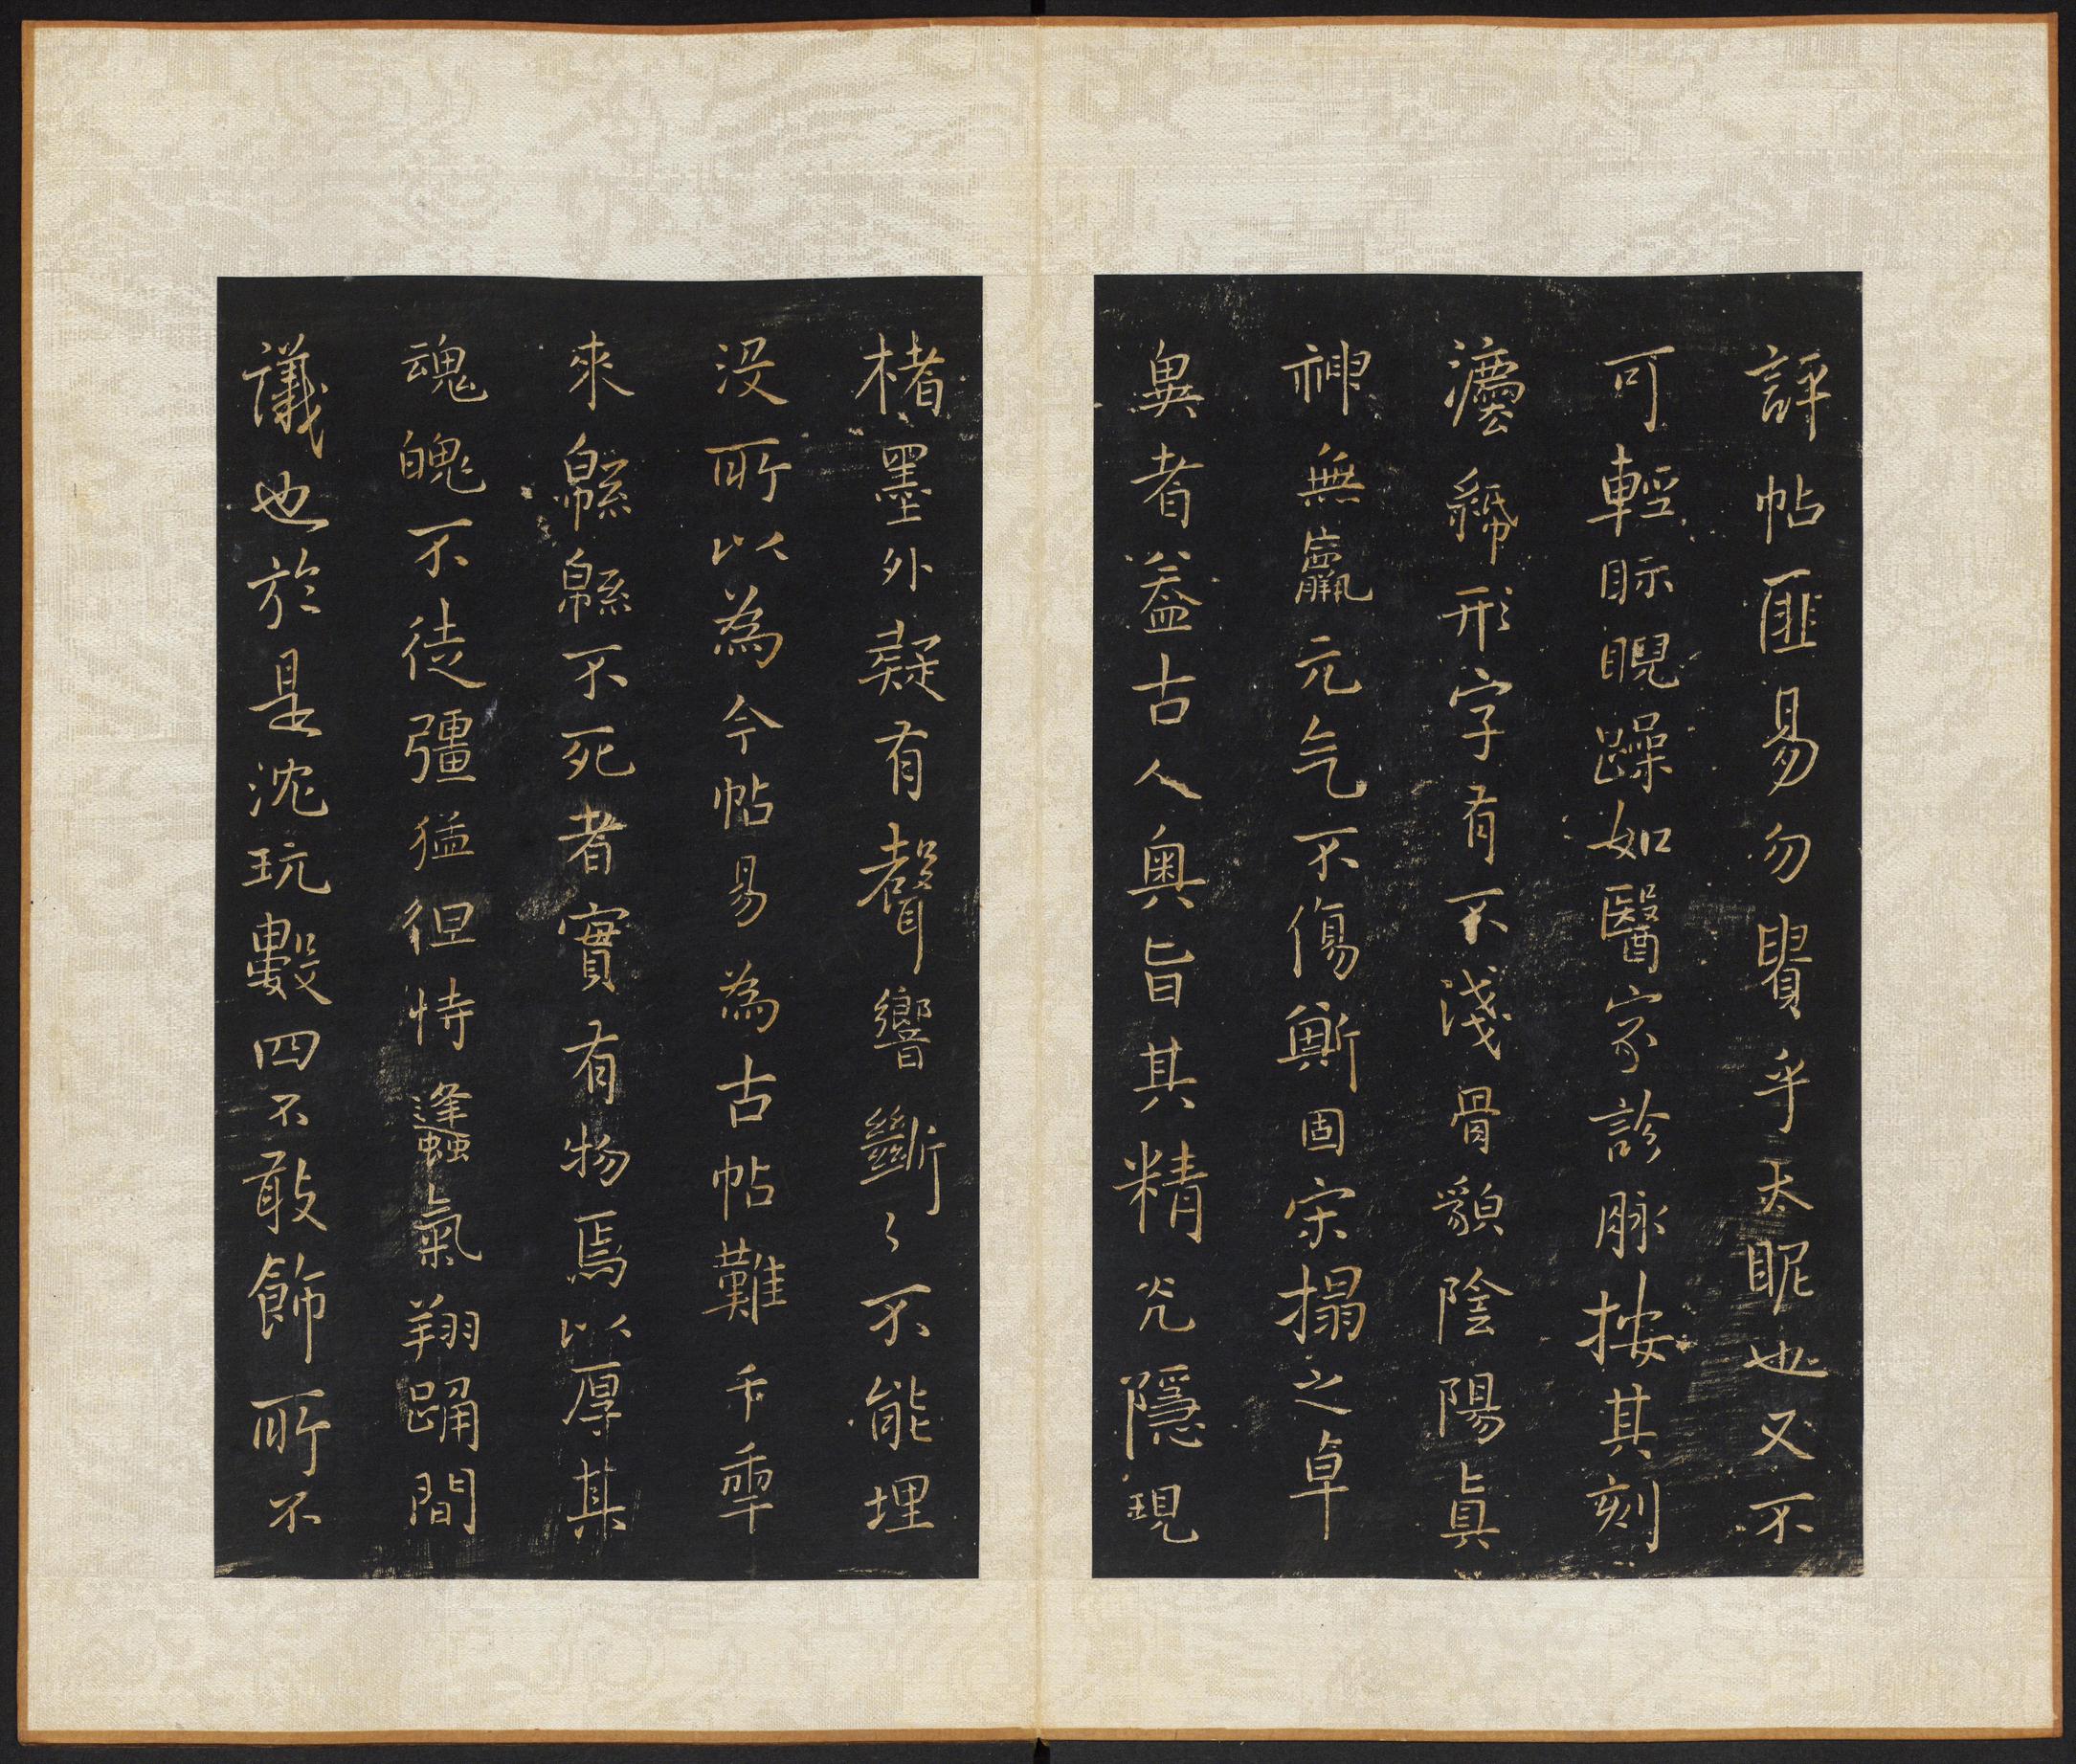 評帖匪易勿貴乎太眤也又不
可輕眎睨躁如醫家診脉按其刻
瀍形字有不淺骨貌陰陽眞
神無羸元气不傷斵固宋搨之卓
異者益古人奥旨其精光隱現
楮墨外疑有聲響斷〻不能埋
没所以為今帖易為古帖難千秊
來緜緜不死者實有物焉以厚其
魂魄不徒彊猛但恃鏠氣翔踊間
議也於是沈玩數四不敢飾所不